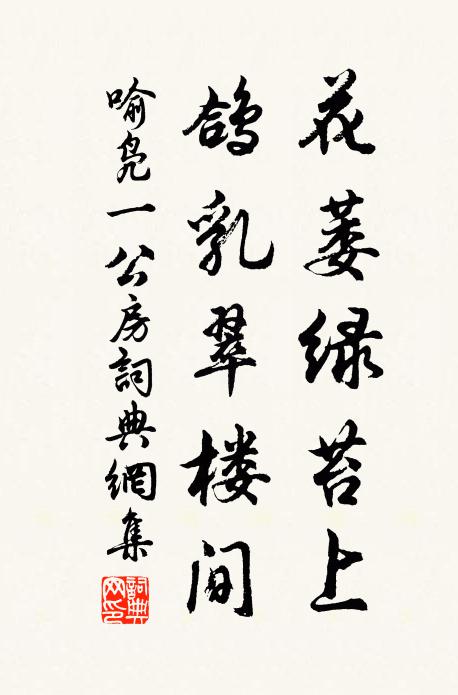 花萎绿苔上
鸽乳翠楼间
喻凫一公房詞典網集
詞典网印